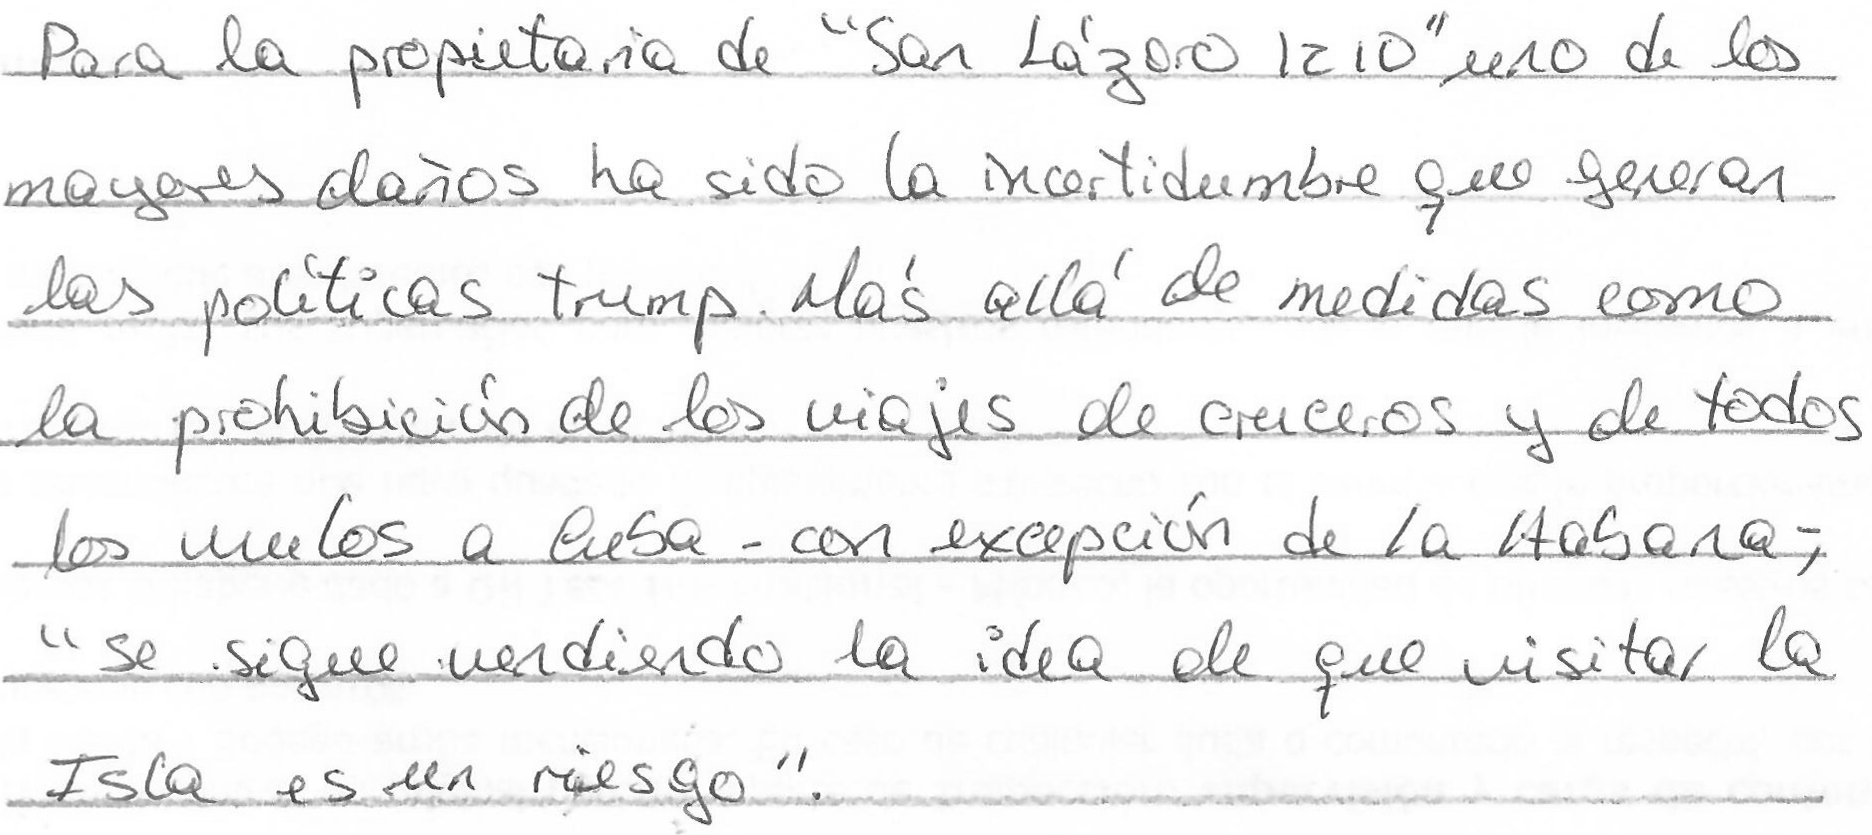 Para la propietaria de "San Lázaro 1210" uno de los
mayores daños ha sido la incertidumbre que generan
las políticas trump. Más allá de medidas como
la prohibición de los viajes de cruceros y de todos
los vuelos a Cuba - con excepción de La Habana -,
"se sigue vendiendo la idea de que visitar la
Isla es un riesgo".